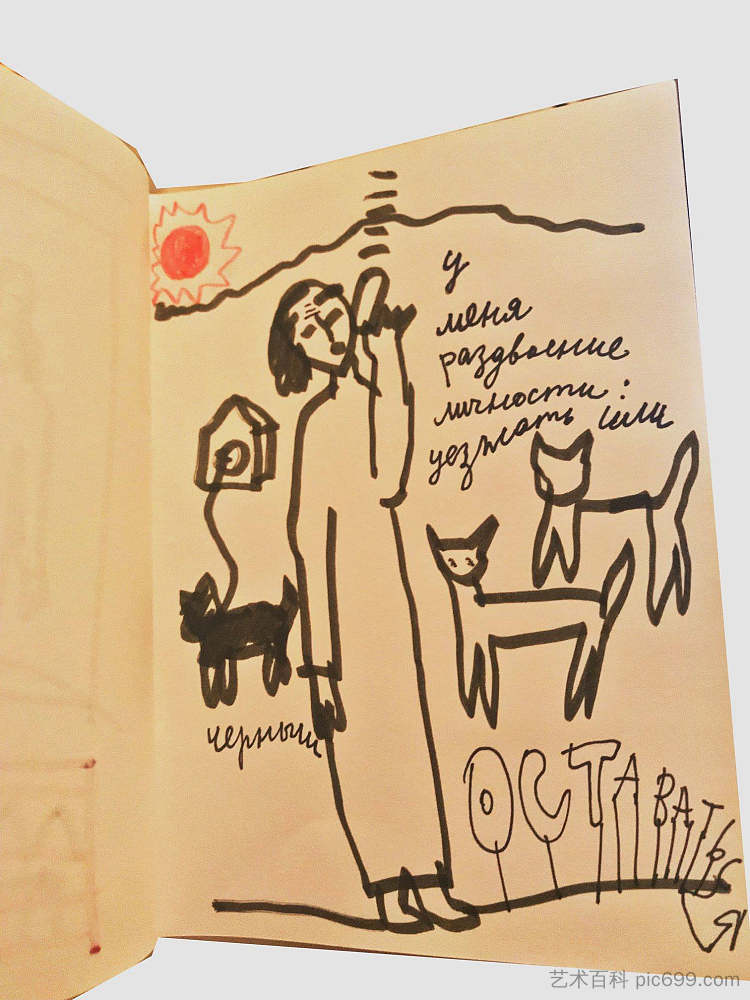 у
меня
раздвоение
личности:
уезжать или
черныш
ОСТАВАТЬСЯ
艺术百科 pic699.com